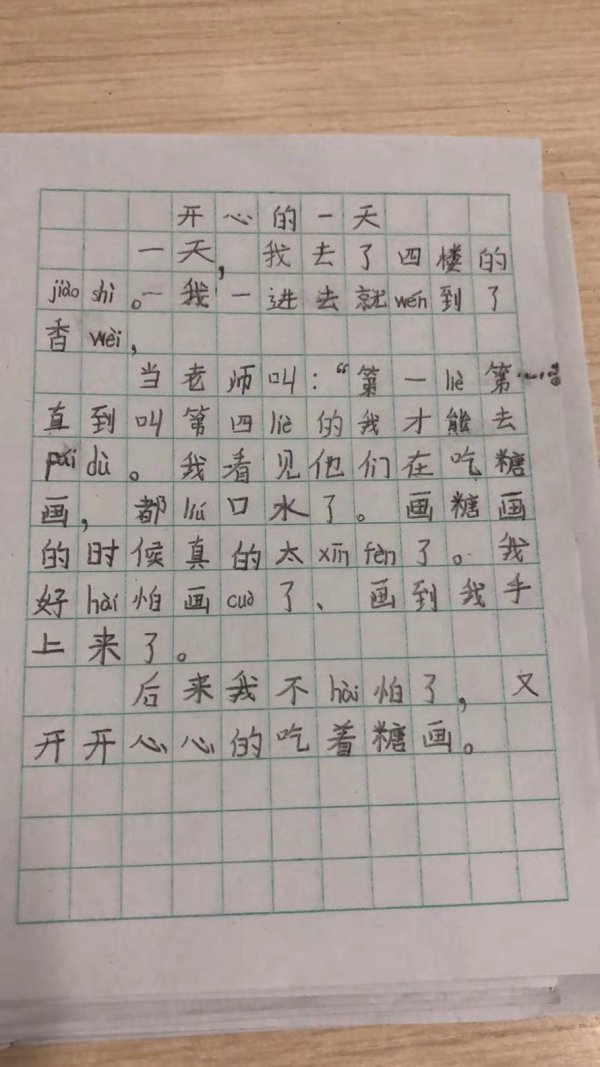 开心的一天
一天，我去了四楼的
jiào shì。一我一进去就wén到了
香wèi，
当老师叫：“第一liè第一……”
直到叫第四liè的我才能去
pái duì。我看见他们在吃糖
画，都liú口水了。画糖画
的时候真的太xīn fèn了。我
好hài怕画cuò了、画到我手
上来了。
后来我不hài怕了，又
开开心心的吃着糖画。